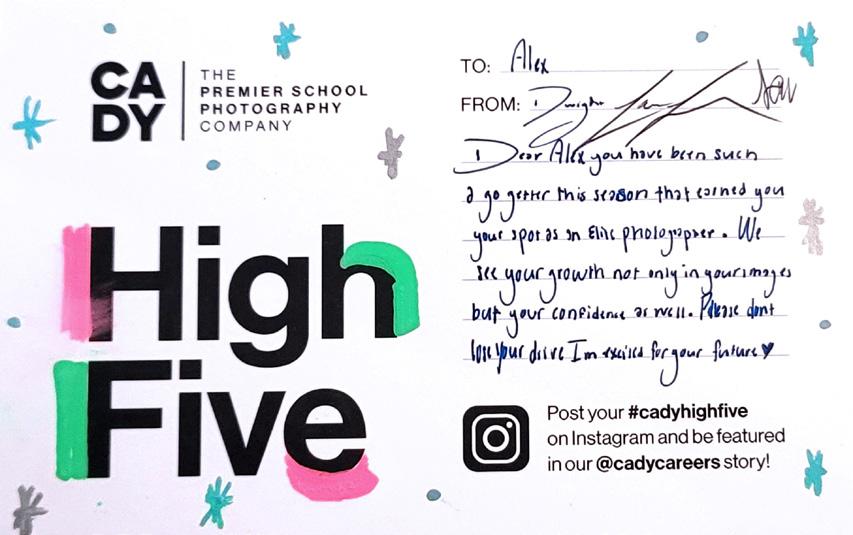 CA
DY
THE
PREMIER SCHOOL
PHOTOGRAPHY
COMPANY
High
Five
TO: Alex
FROM:
Dear Alex you have been such
a go getter this season that earned you
your spot as an Elite photographer. We
see your growth not only in your images
but your confidence as well. Please dont
lose your drive I'm excited for your future♥
Post your #cadyhighfive
on Instagram and be featured
in our @cadycareers story!